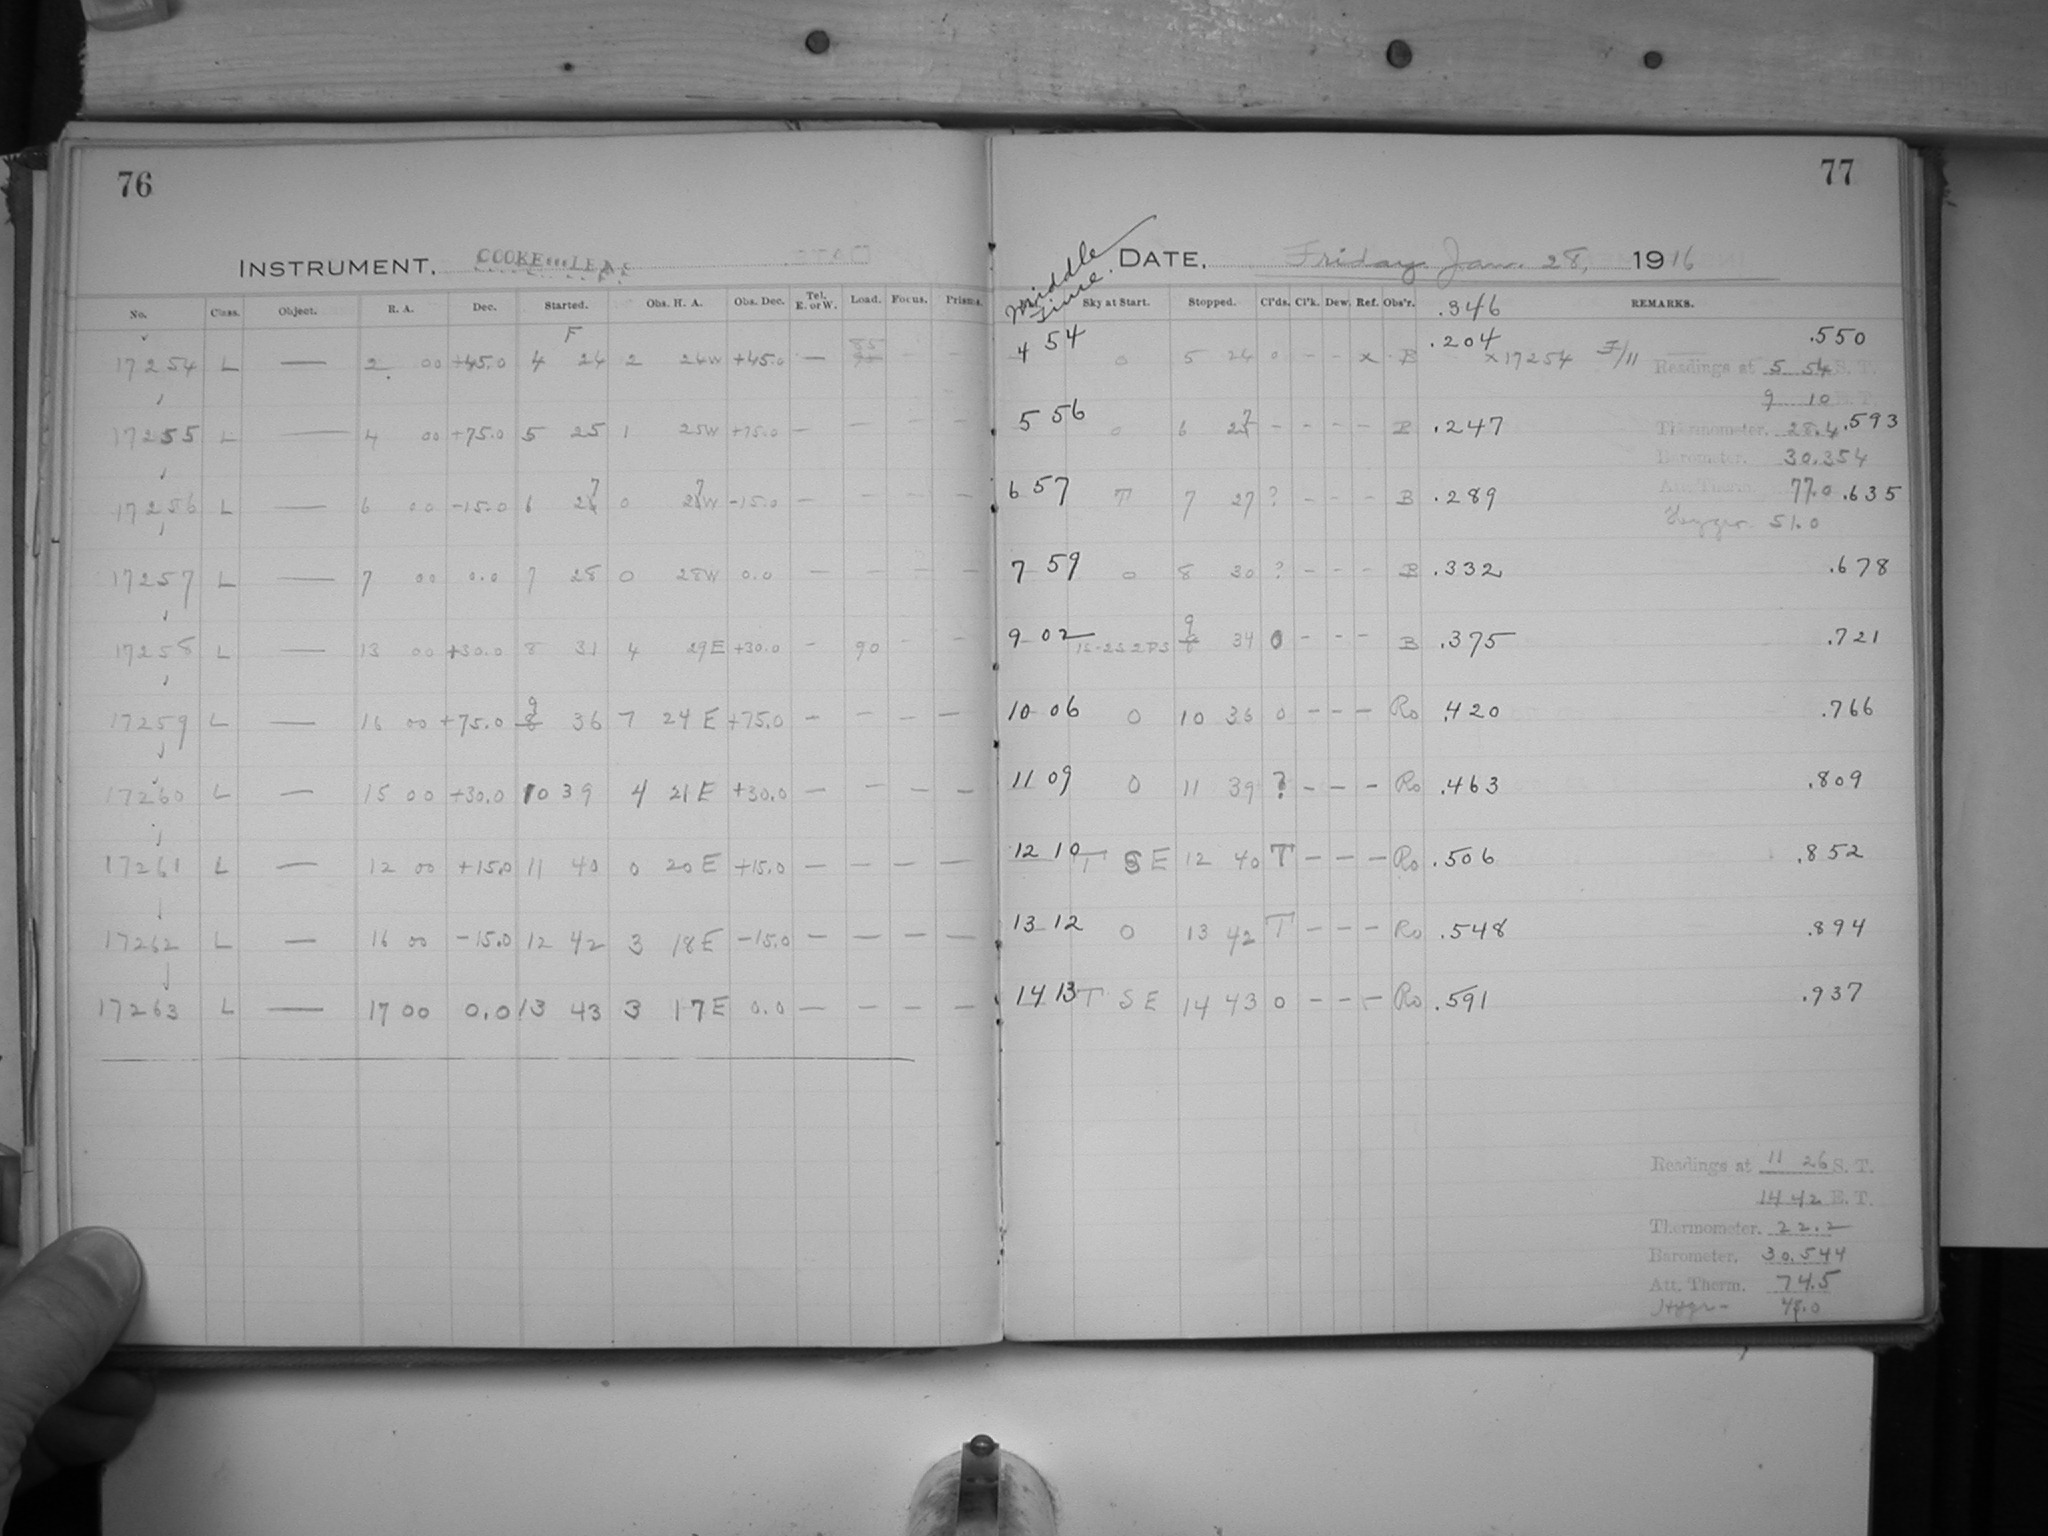 76
INSTRUMENT, COOKE LENS
No. Class. Object. R. A. Dec. Started. Obs. H. A. Obs. Dec. Tel. E. or W. Load. Focus. Prisms.
F
85
17254 L — 2 00 +45.0 4 24 2 24W +45.0 — — —
17255 L — 4 00 +75.0 5 25 1 25W +75.0 — — — —
17256 L — 6 00 -15.0 6 27 0 27W -15.0 — — — —
17257 L — 7 00 0.0 7 28 0 28W 0.0 — — — —
17258 L — 13 00 +30.0 8 31 4 29E +30.0 — 90 — —
17259 L — 16 00 +75.0 9 36 7 24E +75.0 — — — —
17260 L — 15 00 +30.0 10 39 4 21E +30.0 — — — —
17261 L — 12 00 +15.0 11 40 0 20E +15.0 — — — —
17262 L — 16 00 -15.0 12 42 3 18E -15.0 — — — —
17263 L — 17 00 0.0 13 43 3 17E 0.0 — — — —
77
Middle Time. DATE, Friday Jan. 28, 1916
Sky at Start. Stopped. Cl'ds. Cl'k. Dew. Ref. Obs'r. .346 REMARKS.
4 54 0 5 24 0 - - x B .204 x17254 F/11 .550
Readings at 5 54 S. T.
9 10 E. T.
5 56 0 6 27 - - - - B .247 .593
Thermometer. 28.4
Barometer. 30.354
6 57 T 7 27 ? - - - B .289 .635
Att. Therm. 77.0
Hygro. 51.0
7 59 0 8 30 ? - - - B .332 .678
9 02 1S-2S 2PS 9 34 0 - - - B .375 .721
10 06 0 10 36 0 - - - Ro .420 .766
11 09 0 11 39 ? - - - Ro .463 .809
12 10 T SE 12 40 T - - - Ro .506 .852
13 12 0 13 42 T - - - Ro .548 .894
14 13 T SE 14 43 0 - - - Ro .591 .937
Readings at 11 26 S. T.
14 42 E. T.
Thermometer. 22.2
Barometer. 30.544
Att. Therm. 74.5
Hygr-